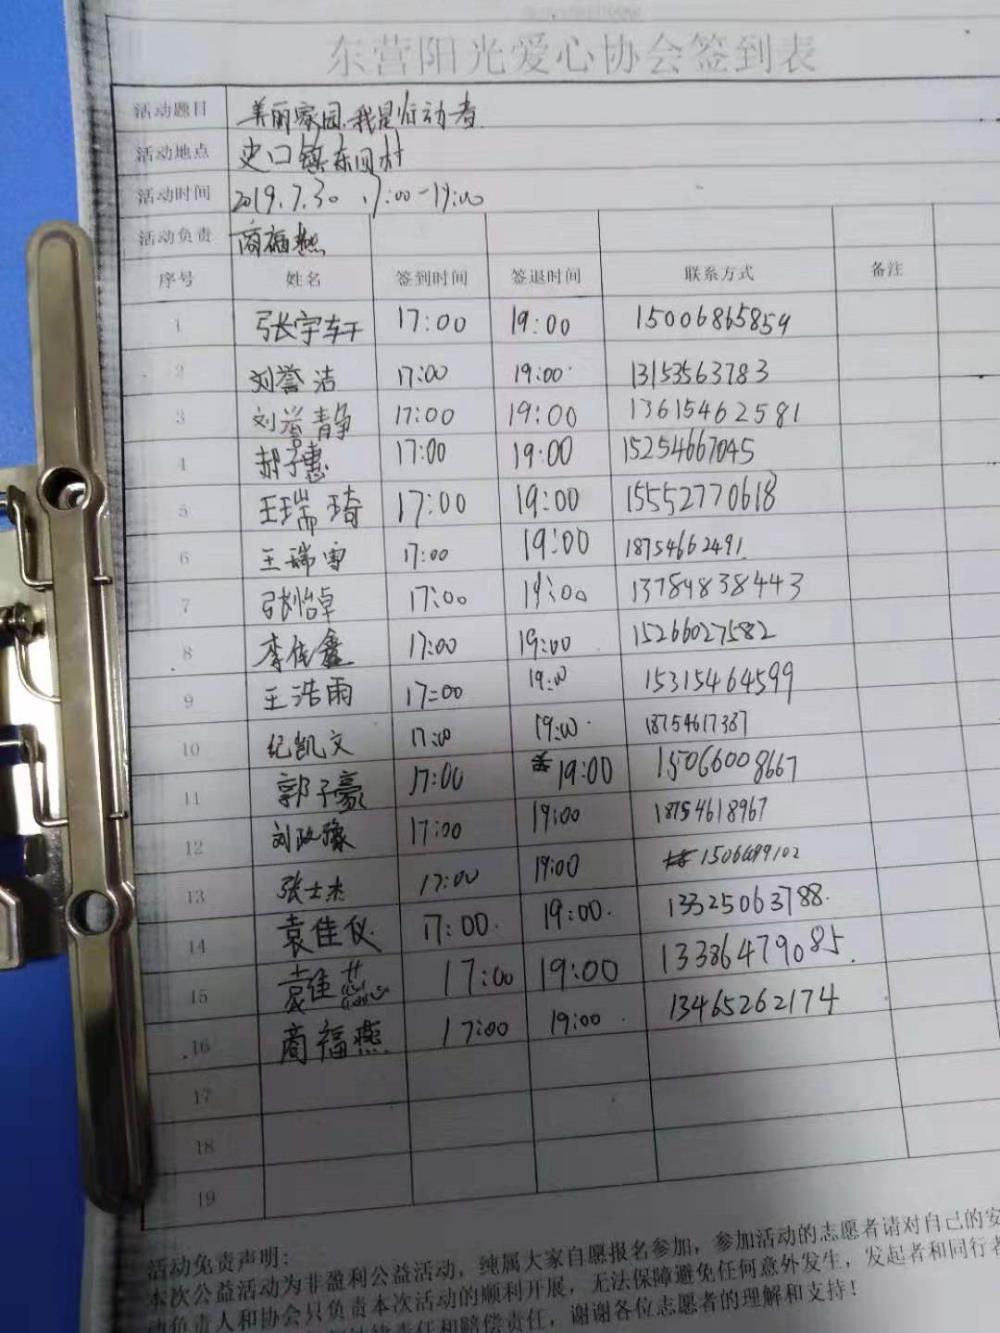 东营阳光爱心协会签到表
活动题目 美丽家园.我是行动者
活动地点 史口镇东闫村
活动时间 2019.7.30 .17:00-19:00
活动负责 商福燕
序号 姓名 签到时间 签退时间 联系方式 备注
1 张宇轩 17:00 19:00 15006865859
2 刘誉洁 17:00 19:00 13153563783
3 刘誉静 17:00 19:00 13615462581
4 郝子惠 17:00 19:00 15254667045
5 王瑞琦 17:00 19:00 15552770618
6 王瑞雪 17:00 19:00 18754662491
7 张怡卓 17:00 19:00 13789838443
8 李佳鑫 17:00 19:00 15266027582
9 王浩雨 17:00 19:00 15315464599
10 纪凯文 17:00 19:00 18754617387
11 郭子豪 17:00 19:00 15066008667
12 刘政豫 17:00 19:00 18754618967
13 张士杰 17:00 19:00 1506499102
14 袁佳仪 17:00 19:00 13325063788
15 袁佳 17:00 19:00 13386479085
16 商福燕 17:00 19:00 13465262174
17
18
19
活动免责声明：
本次公益活动为非盈利公益活动，纯属大家自愿报名参加，参加活动的志愿者请对自己的安
动负责人和协会只负责本次活动的顺利开展，无法保障避免任何意外发生，发起者和同行者
责任和赔偿责任，谢谢各位志愿者的理解和支持！